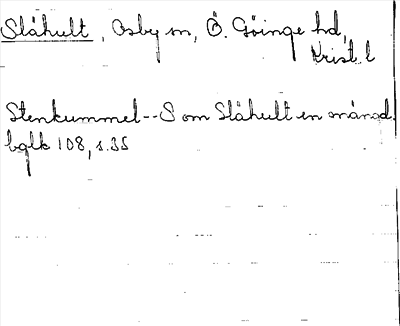 Slähult, Osby sn, Ö. Göinge hd,
Krist. l
Stenkummel--S om Slähult en mängd.
bglk 108, s.35